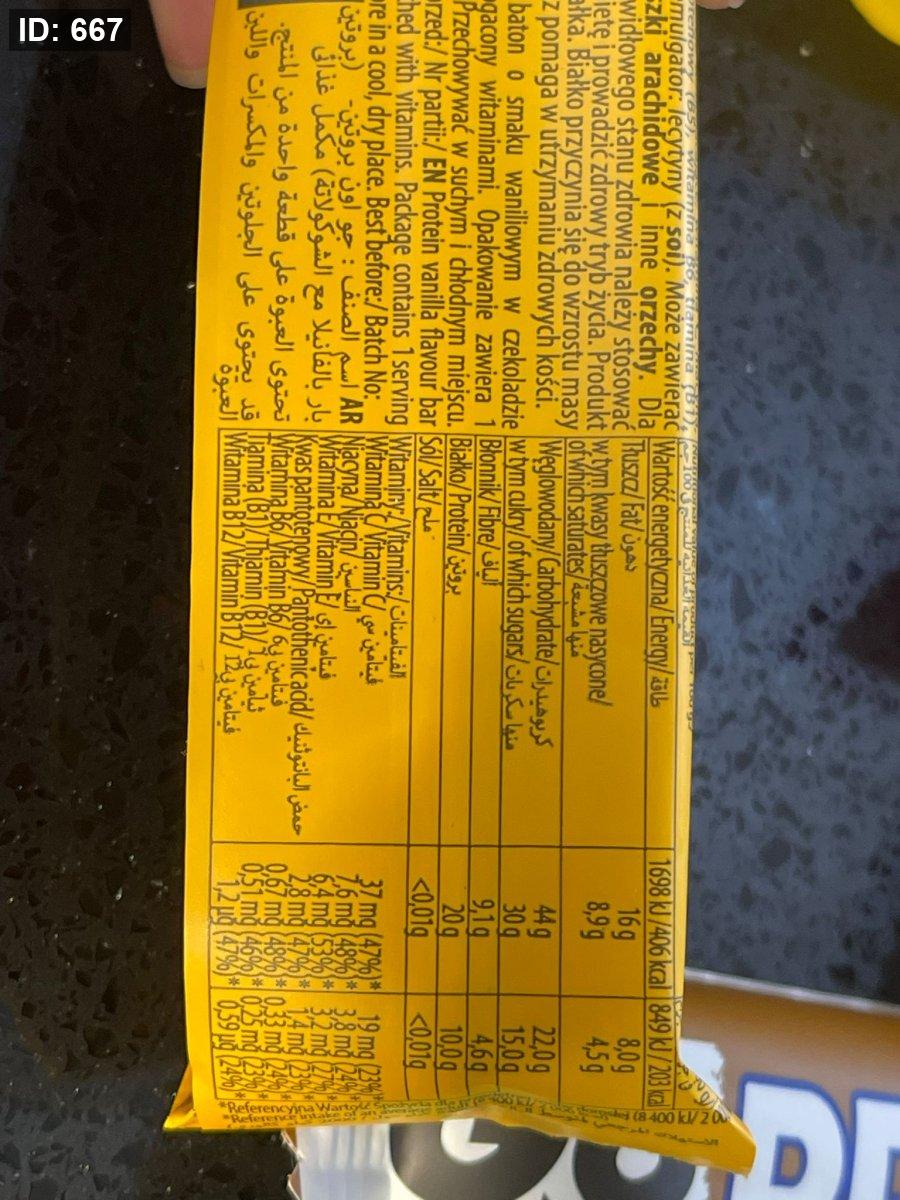 ID: 667
witamina B6, tiamina (B1),
emulgator: lecytyny (z soi). Może zawierać
arachidowe i inne orzechy. Dla
stanu zdrowia należy stosować
i prowadzić zdrowy tryb życia. Produkt
Białko przyczynia się do wzrostu masy
z pomaga w utrzymaniu zdrowych kości.
baton o smaku waniliowym w czekoladzie
witaminami. Opakowanie zawiera 1
Przechowywać w suchym i chłodnym miejscu.
Nr partii:/ EN Protein vanilla flavour bar
with vitamins. Package contains 1 serving
in a cool, dry place. Best before:/ Batch No:
AR اسم الصنف : جو اون بروتين - (بروتين
بار بالفانيلا مع الشوكولاتة) مكمل غذائى
تحتوى العبوة على قطعة واحدة من المنتج.
قد يحتوى على الجلوتين والمكسرات واللبن
العبوة
Wartość energetyczna/ Energy/ طاقة 1698 kJ / 406 kcal 849 kJ / 203 kcal
Tłuszcz/ Fat/ دهون 16 g 8,0 g
w tym kwasy tłuszczowe nasycone/
of which saturates/ منها مشبعة 8,9 g 4,5 g
Węglowodany/ Carbohydrate/ كربوهيدرات 44 g 22,0 g
w tym cukry/ of which sugars/ منها سكريات 30 g 15,0 g
Błonnik/ Fibre/ الياف 9,1 g 4,6 g
Białko/ Protein/ بروتين 20 g 10,0 g
Sól/ Salt/ ملح <0,01g <0,01g
Witaminy:/Vitamins:/ الفيتامينات
Witamina C/ Vitamin C/ فيتامين سي 37 mg (47%)* 19 mg (23%)*
Niacyna/ Niacin/ النياسين 7,6 mg (48%)* 3,8 mg (24%)*
Witamina E/ Vitamin E/ فيتامين اى 6,4 mg (53%)* 3,2 mg (27%)*
Kwas pantotenowy/ Pantothenic acid/ حمض البانتوثنيك 2,8 mg (47%)* 1,4 mg (23%)*
Witamina B6/ Vitamin B6/ فيتامين ب6 0,67 mg (48%)* 0,33 mg (24%)*
Tiamina (B1)/ Thiamin (B1)/ 0,51 mg (46%)* 0,25 mg (23%)*
Witamina B12/ Vitamin B12/ فيتامين ب12 1,2 µg (47%)* 0,59 µg (24%)*
*Referencyjna Wartość Spożycia dla (8 400 kJ/ 2 00
*Reference intake of an average